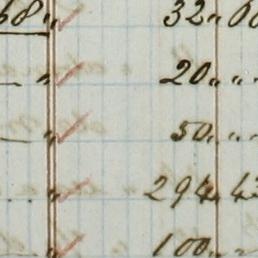 68 " 32 " 60
" 20 " " "
" 50 " " "
" 294 43
100 " "